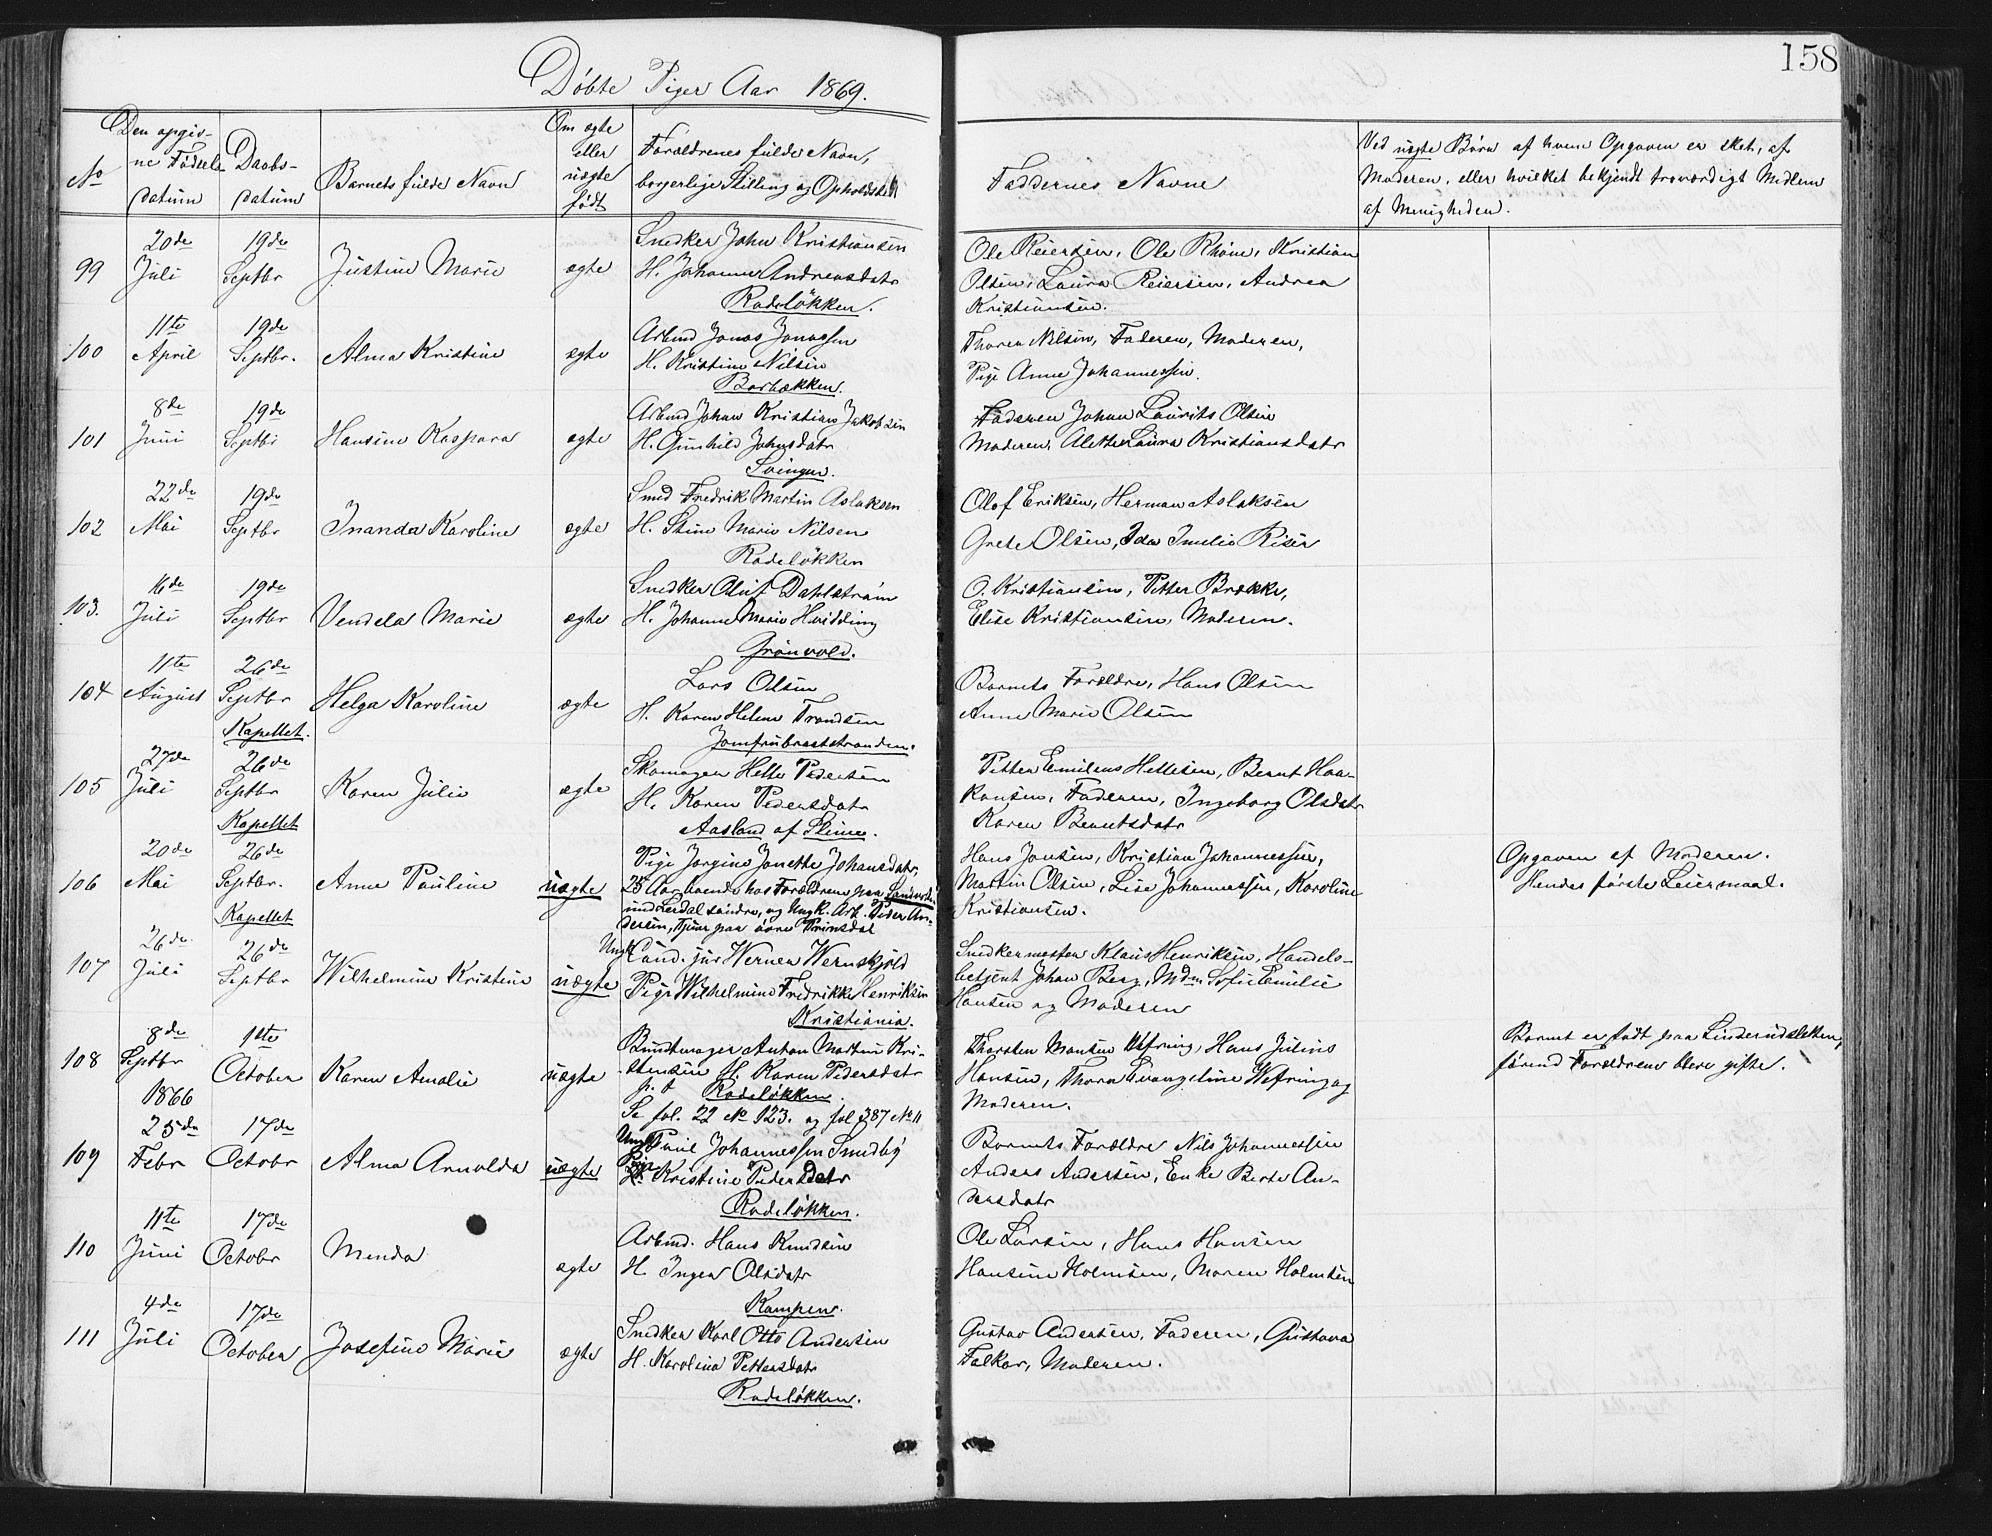 Döbte Piger Aar 1869.
158
No
Den opgivne Födsels datum
Daabs-datum
Barnets fulde Navn
Om ægte eller uægte födt
Forældrenes fulde Navn, borgerlige Stilling og Opholdsted
Faddernes Navne
Ved uægte Börn af hvem Opgaven er sket, af
Moderen, eller hvilket bekjendt troværdigt Medlem
af Menigheden.
99
20de Juli
19de Septbr
Justine Marie
ægte
Snedker John Kristiansen
H. Johanne Andreasdatr
Rodelökken.
Ole Reiersen, Ole Rhone, Kristian
Olsen, Laura Reiersen, Andrea
Kristiansen.
100
11te April
19de Septbr.
Alma Kristine
ægte
Arbmd Jonas Jonassen
H. Kristine Nilsen
Borbækken.
Thoren Nilsen, Faderen, Moderen,
Pige Anne Johannessen.
101
8de Juni
19de Septbr
Hansine Kaspara
ægte
Arbmd Johan Kristian Jakobsen
H. Gunhild Johnsdatr
Svingen.
Faderen Johan Laurits Olsen
Moderen, Alette Laura Kristiansdatr
102
22de Mai
19de Septbr
Inanda Karoline
ægte
Smed Fredrik Martin Aslaksen
H. Stine Marie Nilsen
Rodelökken
Olof Eriksen, Herman Aslaksen
Grete Olsen, Ida Imilie Riser
103.
16de Juli
19de Septbr
Vendela Marie
ægte
Snedker Oluf Dahlström
H. Johanne Marie Hvidding
Grönvold.
O. Kristiansen, Petter Brække,
Elise Kristiansen, Moderen.
104
11te August
26de Septbr
Kapellet.
Helga Karoline
ægte
Lars Olsen
H. Karen Helene Trondsen
Jomfrubraatstranden.
Barnets Forældre, Hans Olsen
Anne Marie Olsen
105
27de Juli
26de Septbr
Kapellet
Karen Julie
ægte
Skomager Helle Pedersen
H. Karen Pedersdatr
Aasland af Slime.
Petter Emilius Hellesen, Bernt Haa-
konsen, Faderen, Ingeborg Olsdatr
Karen Berntsdatr
106
20de Mai
26de Septbr.
Kapellet
Anne Pauline
uægte
Pige Jorgine Jonette Johansdatr,
25 Aar boende hos Forældrene paa
und Lerdal söndre, og Ungk. Arb. Peder An-
dersen, Tjener paa övre Prinsdal
Hans Jonsen, Kristian Johannessen,
Martin Olsen, Lise Johannessen, Karoline
Kristiansen.
Opgaven af Moderen.
Hendes förste Leiermaal.
107
26de Juli
26de Septbr
Wilhelmine Kristine
uægte
Ungk. Cand. jur Werner Wernskjold
Pige Wilhelmine Fredrikke Henriksen
Kristiania.
Snedkermester Klaus Henriksen, Handels-
betjent Johan Berg, Mdm Sofie Emilie
Hansen og Moderen
108
8de Septbr 1866
1ste October
Karen Amalie
uægte
Buntmager Anton Martin Kri-
stensen H. Karen Pedersdatr
Rodelökken.
Se fol. 22 No 123. og fol 387 No 11
Thorsten Monsen Wefring, Hans Julius
Hansen, Thora Evangeline Wefring og
Moderen.
Barnet er födt paa Linderudsletten,
förend Forældrene bleve gifte.
109
25de Febr
17de Octobr
Alma Arnolda
uægte
Ungk Emil Johannessen Smedby
Pige Kristine Pedersdatr
Rodelökken.
Barnets Forældre Nils Johannessen
Anders Andersen, Enke Berte An-
dersdatr
110
11te Juni
17de Octobr
Menda
ægte
Arbmd. Hans Knudsen
H Inger Olsdatr
Kampen.
Ole Larsen, Hans Hansen
Hansine Holmsen, Maren Holmsen
111
4de Juli
17de October
Josefine Marie
ægte
Snedker Karl Otto Andersen
H. Karolina Pettersdatr
Rodelökken.
Gustav Andersen, Faderen, Gustava
Falkor, Moderen.